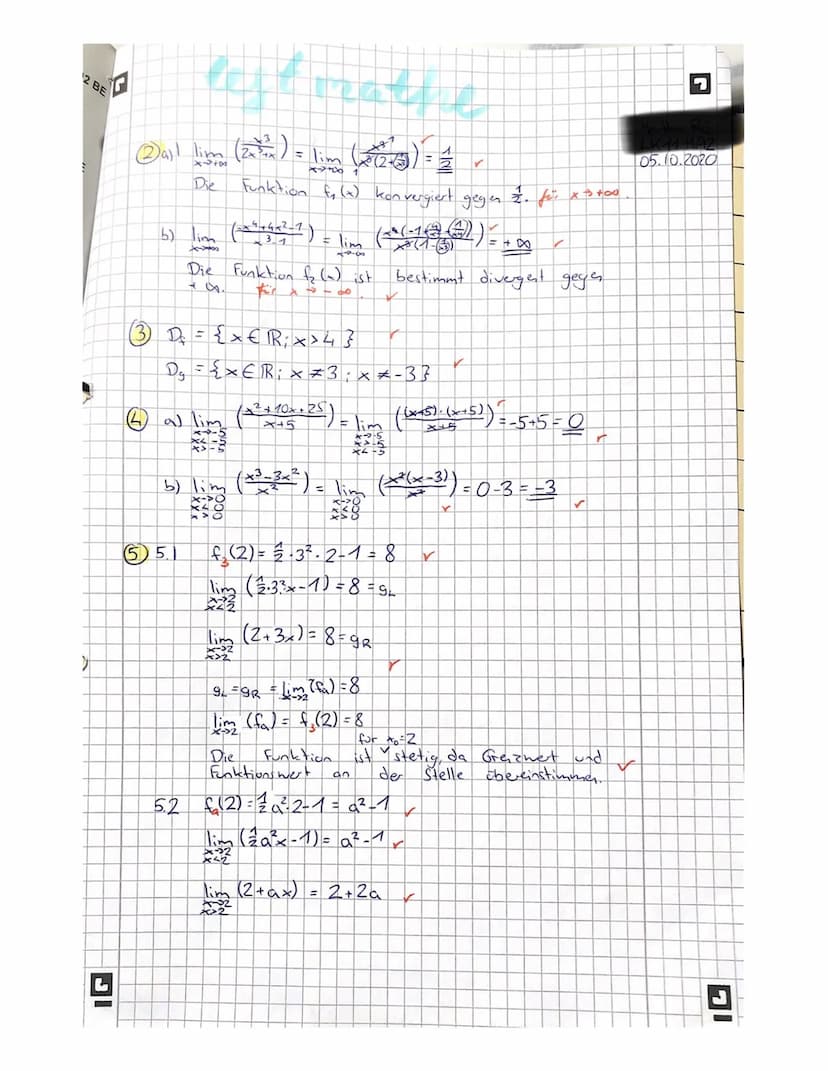 test mathe
2 BE
05.10.2020
② a) lim x→+∞ (x³/(2x³+x)) = lim x→+∞ (x³ 1/(x³(2+(1/x²)))) = 1/2
Die Funktion f₁(x) konvergiert gegen 1/2. für x→+∞.
b) lim x→-∞ ((-x⁴+4x²-1)/(x³-1)) = lim x→-∞ = +∞
Die Funktion f₂(x) ist bestimmt divergent gegen
+∞. für x→-∞.
③ D_f = {x∈ℝ; x>4}
D_g = {x∈ℝ; x≠3; x≠-3}
④ a) lim x→-5 ((x²+10x+25)/(x+5)) = lim x→-5 (((x+5)·(x+5))/(x+5)) = -5+5 = 0
b) lim x→0 x<0 x>0 ((x³-3x²)/x²) = lim x→0 x<0 x>0 ((x²(x-3))/x²) = 0-3 = -3
⑤ 5.1 f₃(2) = 1/2·3²·2-1 = 8
lim x→2 x<2 (1/2·3²·x-1) = 8 = g_L
lim x→2 x>2 (2+3x) = 8 = g_R
g_L = g_R = lim x→2 (fₐ) = 8
lim x→2 (fₐ) = f₃(2) = 8
für x₀=2
Die Funktion ist stetig, da Grenzwert und
Funktionswert an der Stelle übereinstimmen.
5.2 fₐ(2) = 1/2 a²·2-1 = a²-1
lim x→2 x<2 (1/2a²x-1) = a²-1
lim x→2 x>2 (2+ax) = 2+2a